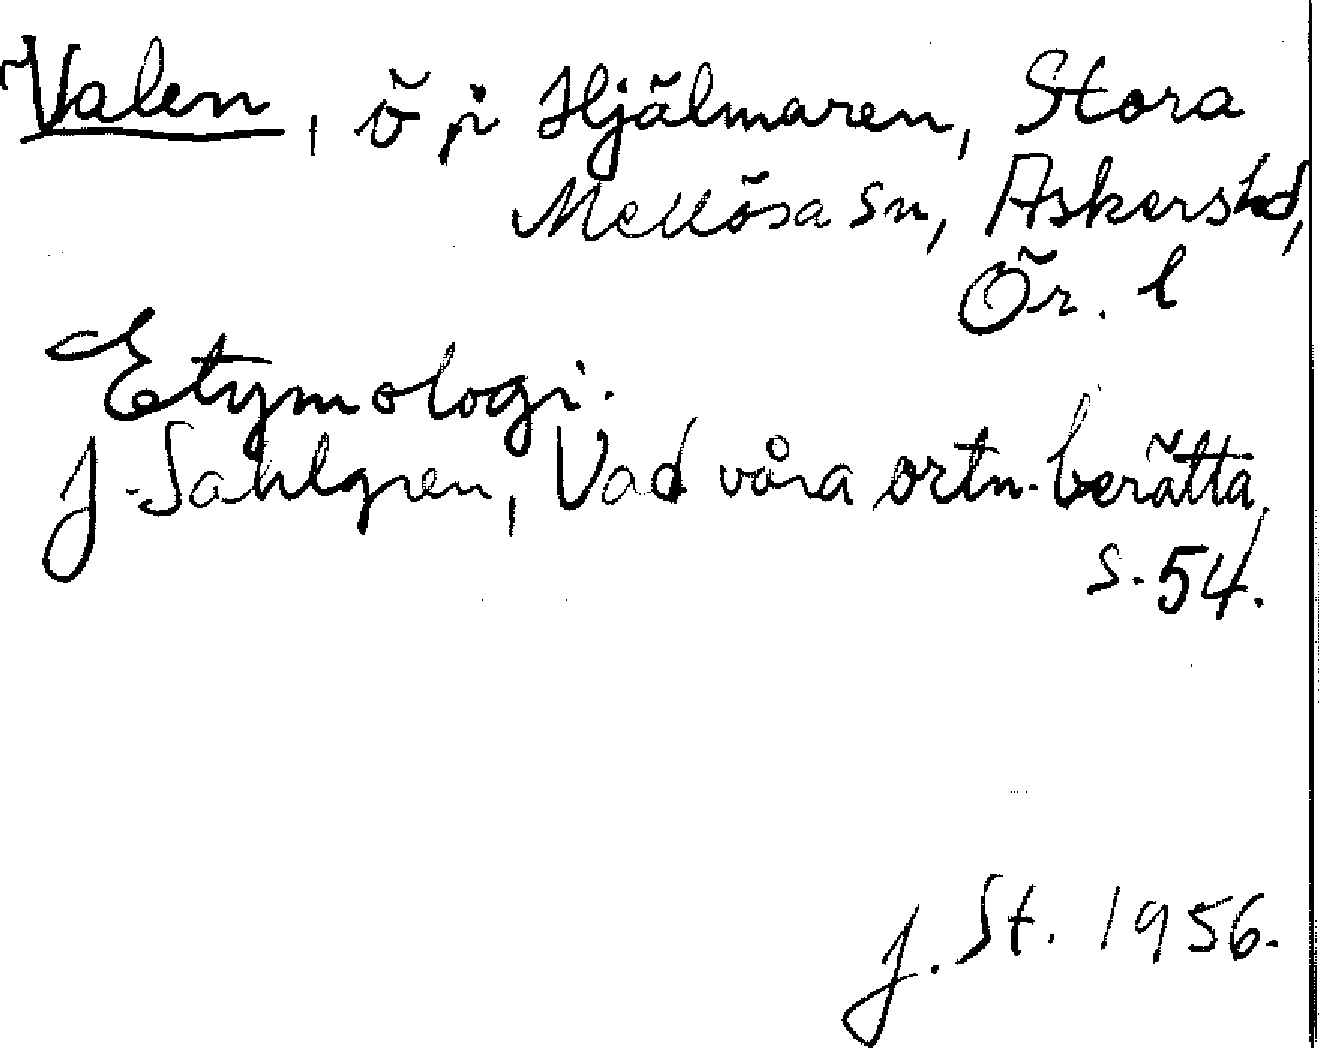 Valen, ö i Hjälmaren, Stora
Mellösa sn, Askers hd,
Ör. l
Etymologi.
J. Sahlgren, Vad våra ortn. berätta,
s. 54.
J. St. 1956.